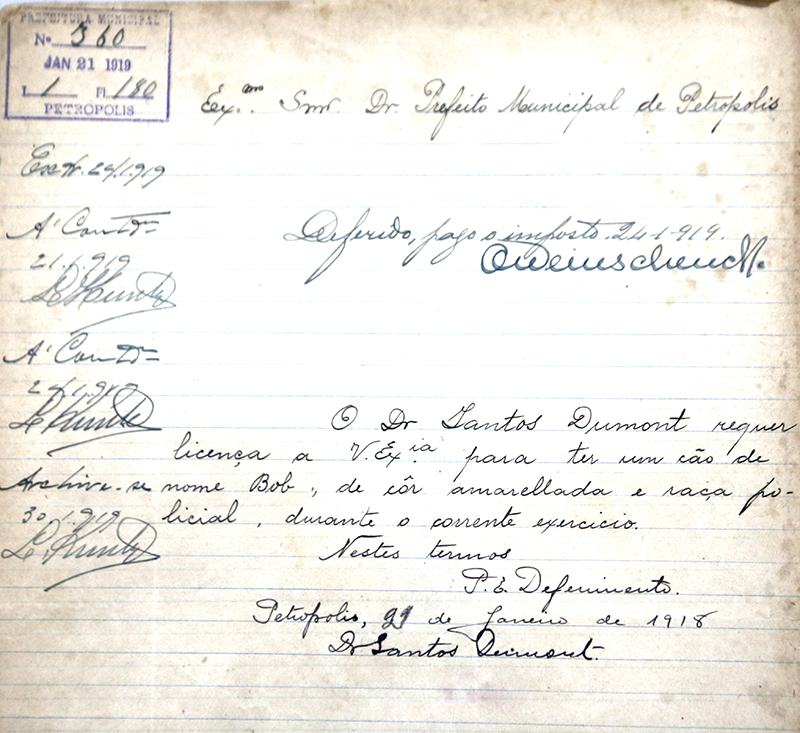 PREFEITURA MUNICIPAL
Nº 360
JAN 21 1919
L 1 Fl. 180
PETROPOLIS
Ex.mo Snr. Dr. Prefeito Municipal de Petropolis
24.1.919
A' Contª
21.1.919
Deferido, pago o imposto. 24-1-919.
OWeinschenck.
A' Contª
24.1.919
O Dr Santos Dumont requer
licença a V. Ex.ia para ter um cão de
nome Bob, de côr amarellada e raça po-
licial, durante o corrente exercicio.
Archive-se
30.1.919
Nestes termos
P. E. Deferimento.
Petropolis, 21 de Janeiro de 1918
Dr Santos Dumont.